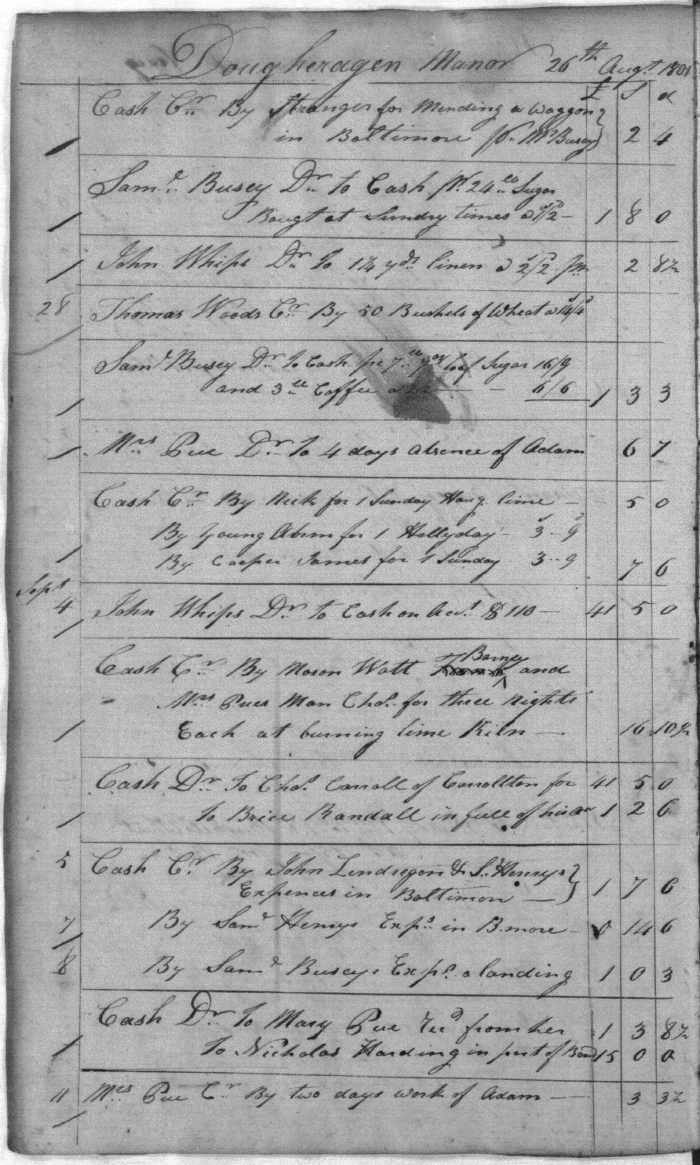 Dougheragen Manor 26th Augt. 1801
£ S d
Cash Cr. By Stranger for Mending a Waggon
in Baltimore pr. Mr Busey 2 4
Saml. Busey Dr to Cash pr. 24 lb Sugar
Bougt at Sundry times a 1/2 — 1 8 0
John Whips Dr. To 1¼ yds. linen a 2/2 2 8½
28 Thomas Woods Cr. By 50 Bushels of Wheat a
Saml. Busey Dr. to Cash for 7 lb loaf Sugar 16/9
and 3 lb Coffee a 22 — 6/6 1 3 3
Mrs Pue Dr. To 4 days absence of Adam 6 7
Cash Cr. By Neck for 1 Sunday Haug. lime — 5 0
By Young Abrm for 1 Hollyday — 3 .. 9
By Cooper James for 1 Sunday 3 .. 9 7 6
Sept
4 John Whips Dr. to Cash on Acct. $ 110 — 41 5 0
Cash Cr. By Mason Watt Barney and
Mrs Pues Man Chas. for three nights
Each at burning lime Kiln — 16 10½
Cash Dr. To Chas. Carroll of Carrollton for 41 5 0
To Brice Randall in full of his ac 1 2 6
5 Cash Cr. By John Lindregon & S. Henrys
Expences in Baltimore — 1 7 6
7 By Saml. Henrys Exps. in B.more — 0 14 6
8 By Saml. Buseys Exps. a landing 1 0 3
Cash Dr. To Mary Pue Recd from her 1 3 8½
To Nicholas Harding in part of Bond 15 0 0
11 Mrs Pue Cr. By two days work of Adam — 3 3½